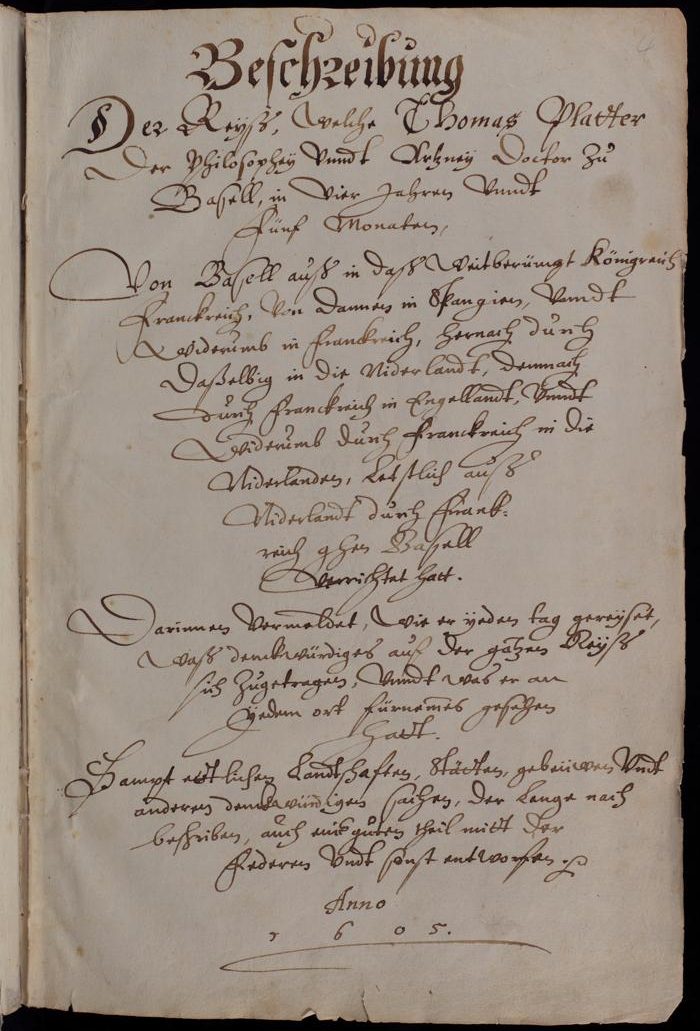 Beschreibung
Der Reyß, welche Thomas Platter
Der Philosophey vnndt Artzney Doctor zu
Basell, in Vier Jahren vnndt
Fünf Monaten,
Von Basell auß in daß weitberümgt Königreich
Franckreich, Von dannen in Spangien, vnndt
Widerumb in Franckreich, hernach durch
Daßelbig in die Niderlandt, demnach
durch Franckreich in Engellandt, vnndt
Widerumb durch Franckreich in die
Niderlanden, Letstlich auß
Niderlandt durch Franck-
reich ghen Basell
Verrichtet hatt.
Darinnen Vermeldet, wie er yeden tag gereyset,
waß denckwürdiges auf der gantzen Reyß
sich zugetragen, vnndt was er an
Yedem ort fürnemes gesehen
hatt.
Sampt ettlichen Landtschaften, Stätten, gebeüwen vndt
anderen denckwürdigen sachen, der Lenge nach
beschriben, auch guten theil mitt der
Federen vndt sonst entworfen.
Anno
1605.